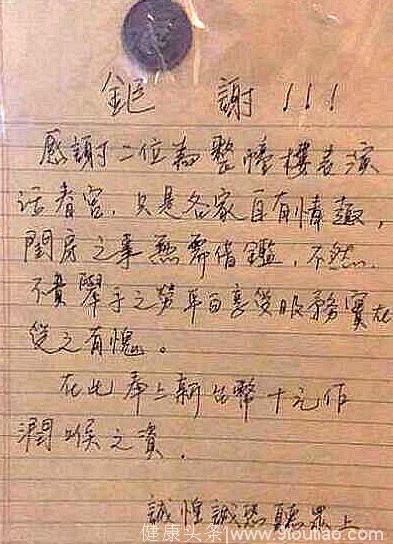 鉅 謝!!!
感謝二位為整幢樓表演
活春宮,只是各家自有情趣,
閨房之事無需借鑑,不然..
不費舉手之勞平白享受服務實在
受之有愧。
在此奉上新台幣十元作
潤喉之資.
誠惶誠恐聽眾上
健康头条/www.91outiao.com